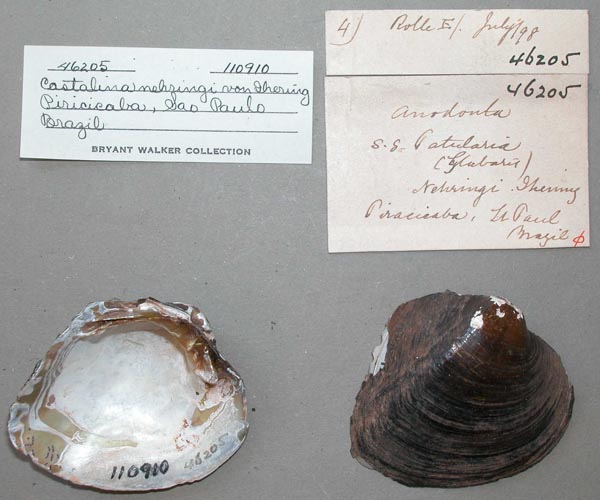 46205 110910
Castalina nehringi von Ihering
Piricicaba, Sao Paulo
Brazil
BRYANT WALKER COLLECTION
4) Rolle E/. July/98
46205
46205
Anodonta
s.g. Patularia
(Glabaris)
Nehringi Ihering
Piracicaba, St Paul
Brazil
110910 46205